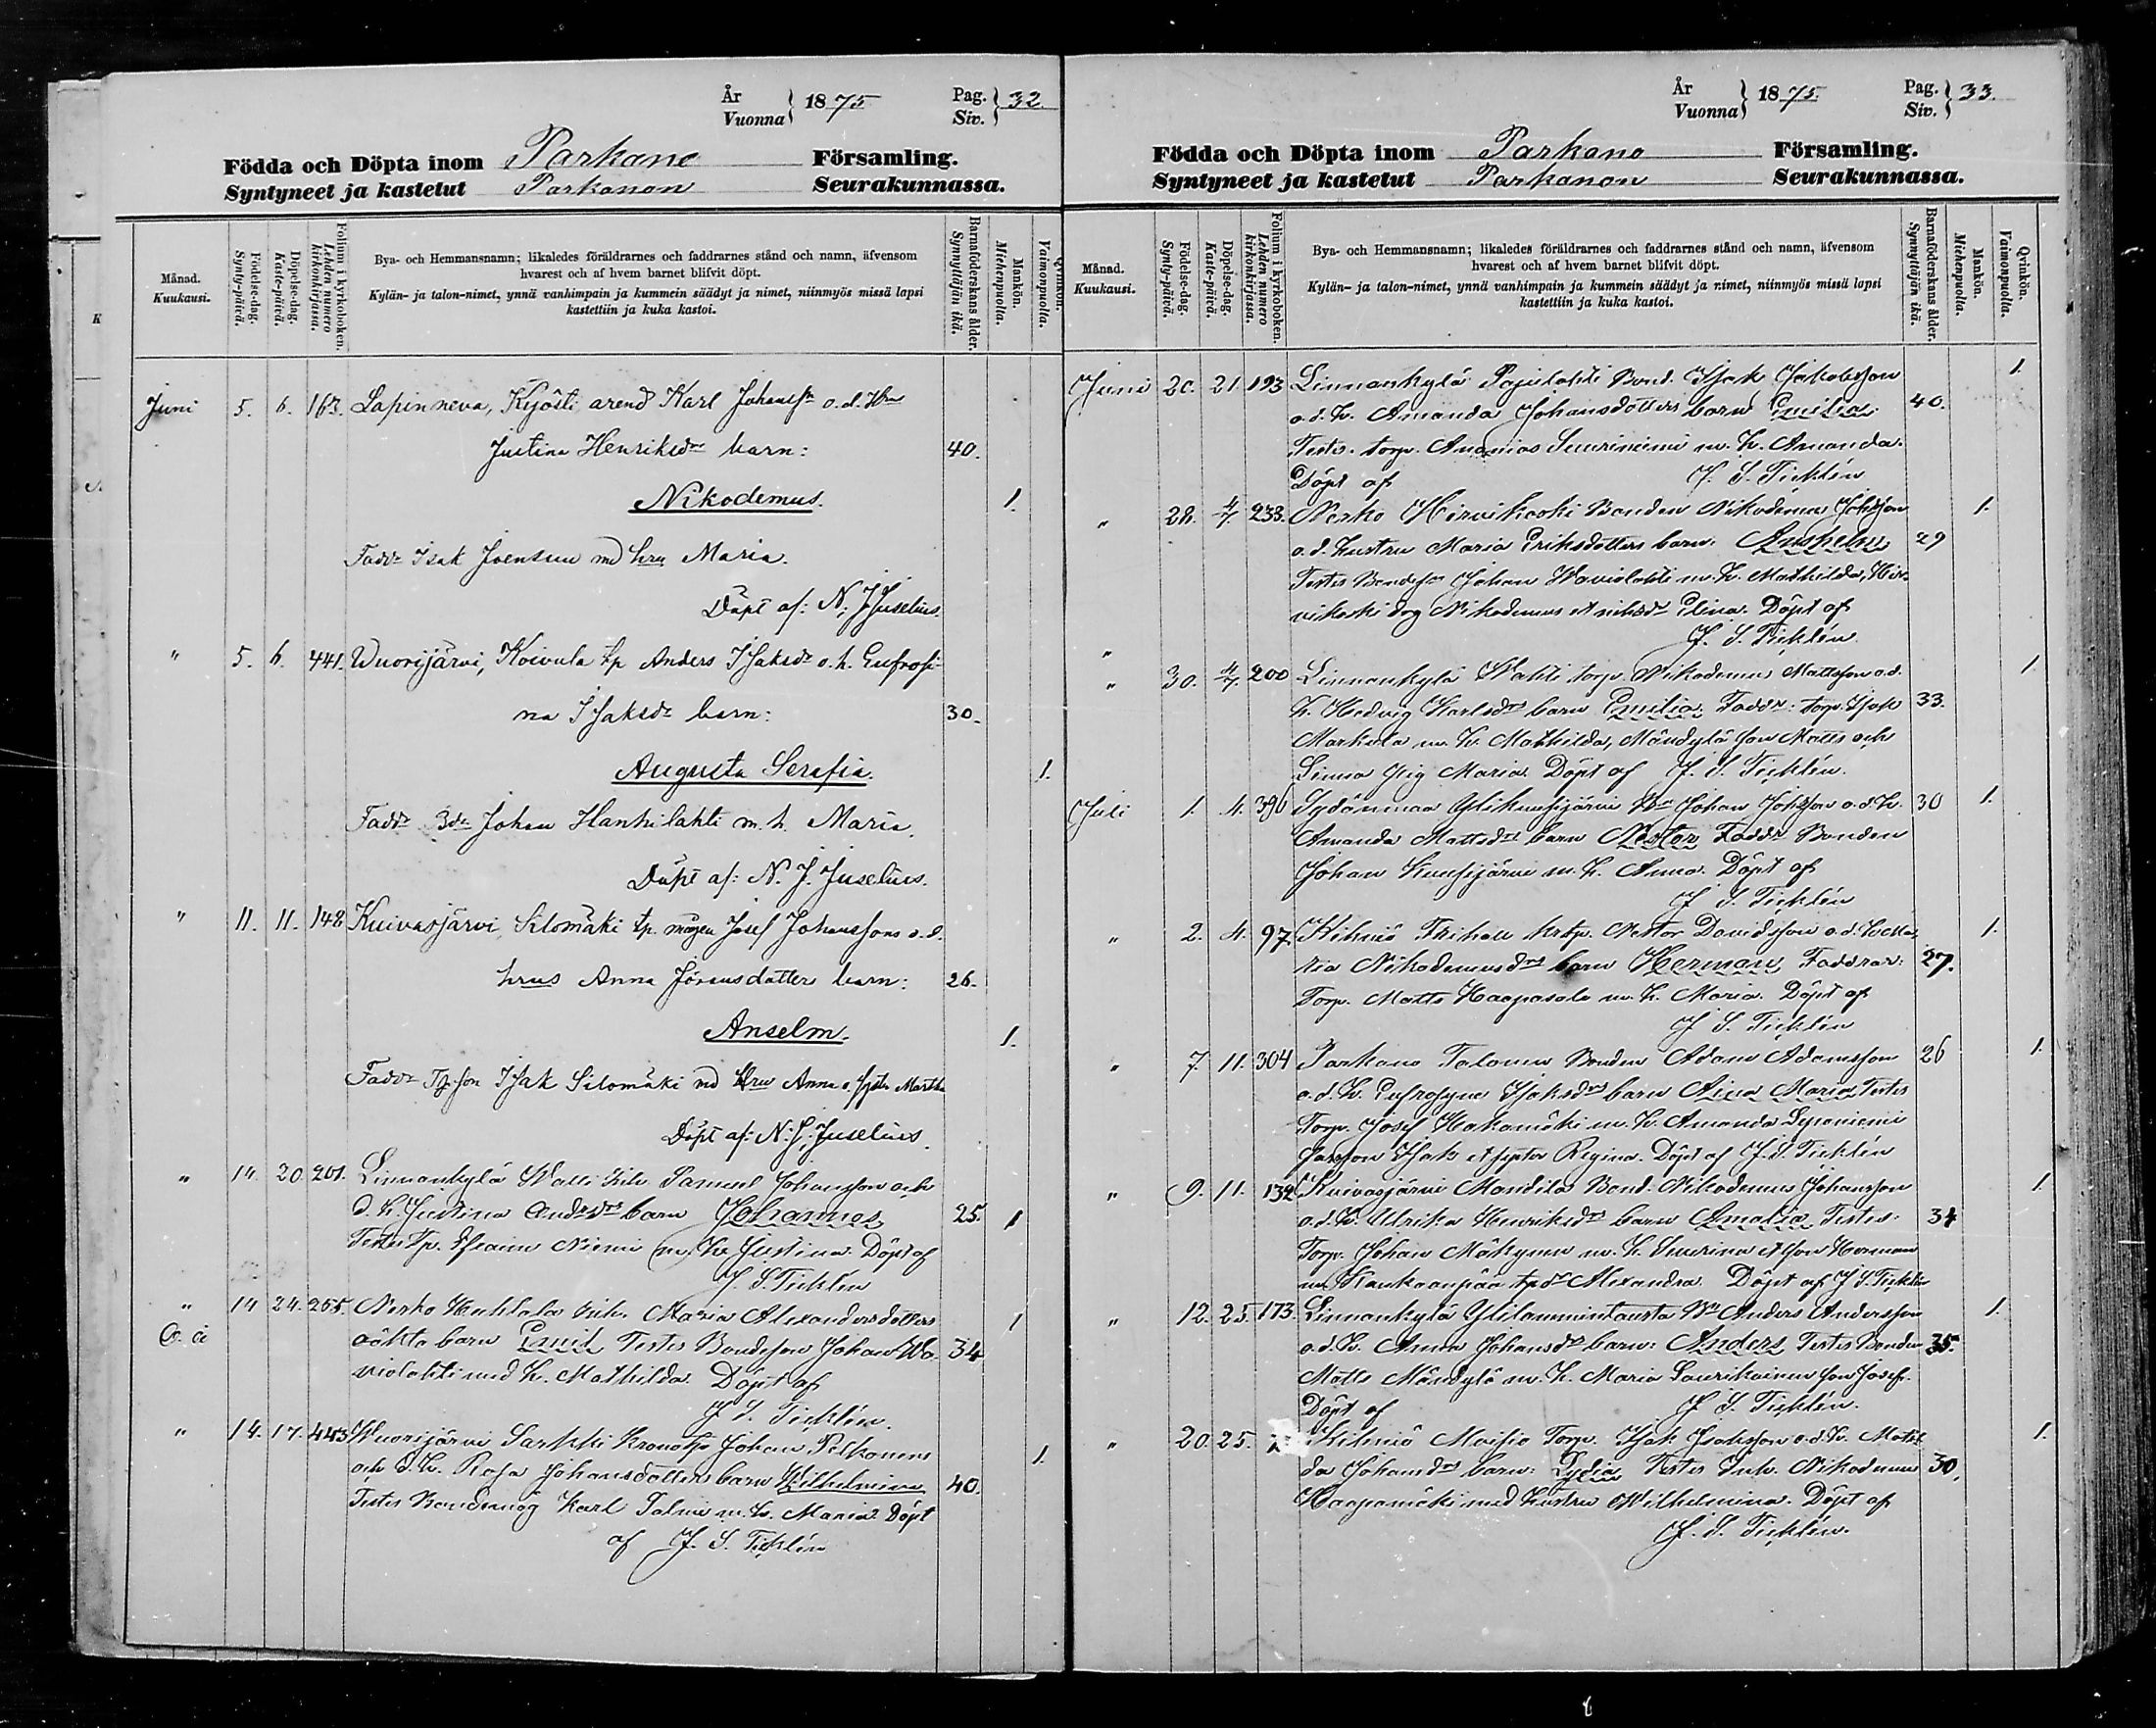 År
Vuonna } 1875 Pag.
Siv. } 32
Födda och Döpta inom Parkano Församling.
Syntyneet ja kastetut Parkanon Seurakunnassa.
Månad.
Kuukausi.
Födelse-dag.
Synty-päivä.
Döpelse-dag.
Kaste-päivä.
Folium i kyrkoboken.
Lehden numero
kirkonkirjassa.
Bya- och Hemmansnamn; likaledes föräldrarnes och faddrarnes stånd och namn, äfvensom
hvarest och af hvem barnet blifvit döpt.
Kylän- ja talon-nimet, ynnä vanhimpain ja kummein säädyt ja nimet, niinmyös missä lapsi
kastettiin ja kuka kastoi.
Barnaföderskans ålder.
Synnyttäjän ikä.
Mankön.
Miehenpuolta.
Qvinkön.
Vaimonpuolta.
Juni 5. 6. 163. Lapinneva, Kyösti arend Karl Johanss o.d. Hrus
Justina Henriksdrs barn: 40.
Nikodemus. 1.
Faddr Isak Joensuu md hru Maria.
Döpt af: N. J. Juselius.
" 5. 6. 441. Wuorijärvi, Koivula tp Anders Isaksdr o. h. Eufrosi-
na Isaksdr barn: 30.
Augusta Serafia. 1.
Faddr Bdn Johan Hankilahti m. h. Maria.
Döpt af: N. J. Juselius.
" 11. 11. 148 Kuivasjärvi, Silomäki tp. mågen Josef Johanssons o. d.
hrus Anna Göransdotters barn: 26.
Anselm. 1.
Faddr Tpson Isak Silomäki md hru Anna o. Martha
Döpt af: N. J. Juselius.
" 14. 20. 201. Linnankylä Walli Inh. Samuel Johansson och
d. H. Justina Andersdrs barn Johannes 25. 1
Testes Tp. Efraim Niemi m. Hu Justina. Döpt af
J. S. Ticklén
" 14 24. 255. Nerko Huhtala Inh. Maria Alexandersdotters
O. ä oäkta barn Emil Testes Bondeson Johan Wa- 34 1
violahti med H. Mathilda. Döpt af
J. S. Ticklén.
" 14. 17. 443 Wuorijärvi Sarkki Kronotp Johan Pelkonens
och d. H. Rosa Johansdotters barn Wilhelmina 40. 1.
Testes Bondemåg Karl Salmi m. H. Maria. Döpt
af J. S. Ticklén
År
Vuonna } 1875. Pag.
Siv. } 33.
Födda och Döpta inom Parkano Församling.
Syntyneet ja kastetut Parkanon Seurakunnassa.
Månad.
Kuukausi.
Födelse-dag.
Synty-päivä.
Döpelse-dag.
Kaste-päivä.
Folium i kyrkoboken.
Lehden numero
kirkonkirjassa.
Bya- och Hemmansnamn; likaledes föräldrarnes och faddrarnes stånd och namn, äfvensom
hvarest och af hvem barnet blifvit döpt.
Kylän- ja talon-nimet, ynnä vanhimpain ja kummein säädyt ja nimet, niinmyös missä lapsi
kastettiin ja kuka kastoi.
Barnaföderskans ålder.
Synnyttäjän ikä.
Mankön.
Miehenpuolta.
Qvinkön.
Vaimonpuolta.
Juni 20. 21. 193 Linnankylä Pajulahti Bond. Isak Jakobsson 1.
o.d. H. Amanda Johansdotters barn Emilia. 40.
Testes. torp. Ananias Suuriniemi m. H. Amanda.
Döpt af J. S. Ticklén
" 28. 4/7. 233. Nerko Hirvikoski Bonden Nikodemus Johsson 1.
o.d. hustru Maria Eriksdotters barn: Anshelm 29
Testes Bondeson Johan Waviolahti m. H. Mathilda, Hir-
vikoski dog Nikodemus et Elina. Döpt af
J. S. Ticklén.
"
" 30. 4/7. 200 Linnankylä Wahti torp. Nikodemus Mattsson o.d. 1.
H. Hedvig Karlsdrs barn Emilia. Faddr: torp. Isak 33.
Markula m. H. Mathilda, Mändylä son Matts och
Linna pig Maria. Döpt af J. S. Ticklén.
Juli 1. 4. 396 Sydänmaa Ylikuusijärvi Bn Johan Johsson o.d. H. 30 1.
Amanda Mattsdrs barn Nestor Faddr Bonden
Johan Kuusijärvi m. H. Anna. Döpt af
J. S. Ticklén
" 2. 4. 97. Kihniö Krtp. Nestor Davidsson o.d. H. Ma- 1.
ria Nikodemusdrs barn Herman Faddrar: 27.
Torp. Matts Haapasalo m. H. Maria. Döpt af
J. S. Ticklén
" 7. 11. 304 Parkano Talonen Bonden Adam Adamsson 26 1.
o.d. H. Eufrosyne Isaksdrs barn Aina Maria Testes
Torp. Josef Hakamäki m. H. Amanda Leponiemi
Isak et Regina. Döpt af J. S. Ticklén
" 9. 11. 132 Kuivasjärvi Mandila Bond. Nikodemus Johansson 1.
o.d. H. Ulrika Henriksdrs barn Amalia Testes. 34
Torp. Johan Mäkynen m. H. Severina et son Herman
m Kankaanpää tpdr Alexandra. Döpt af J. S. Ticklén
" 12. 25. 173. Linnankylä Ylilammintausta Bn Anders Andersson 1.
o.d. H. Anna Johansdrs barn: Anders Testes Bonden 35.
Matts Mändylä m. H. Maria son Josef.
Döpt af J. S. Ticklén.
" 20. 25. Kihniö Torp. Isak Isaksson o.d. H. Matil- 1.
da Johansdrs barn: Lydia Testes Inh. Nikodemus 30,
Haapamäki med hustru Wilhelmina. Döpt af
J. S. Ticklén.